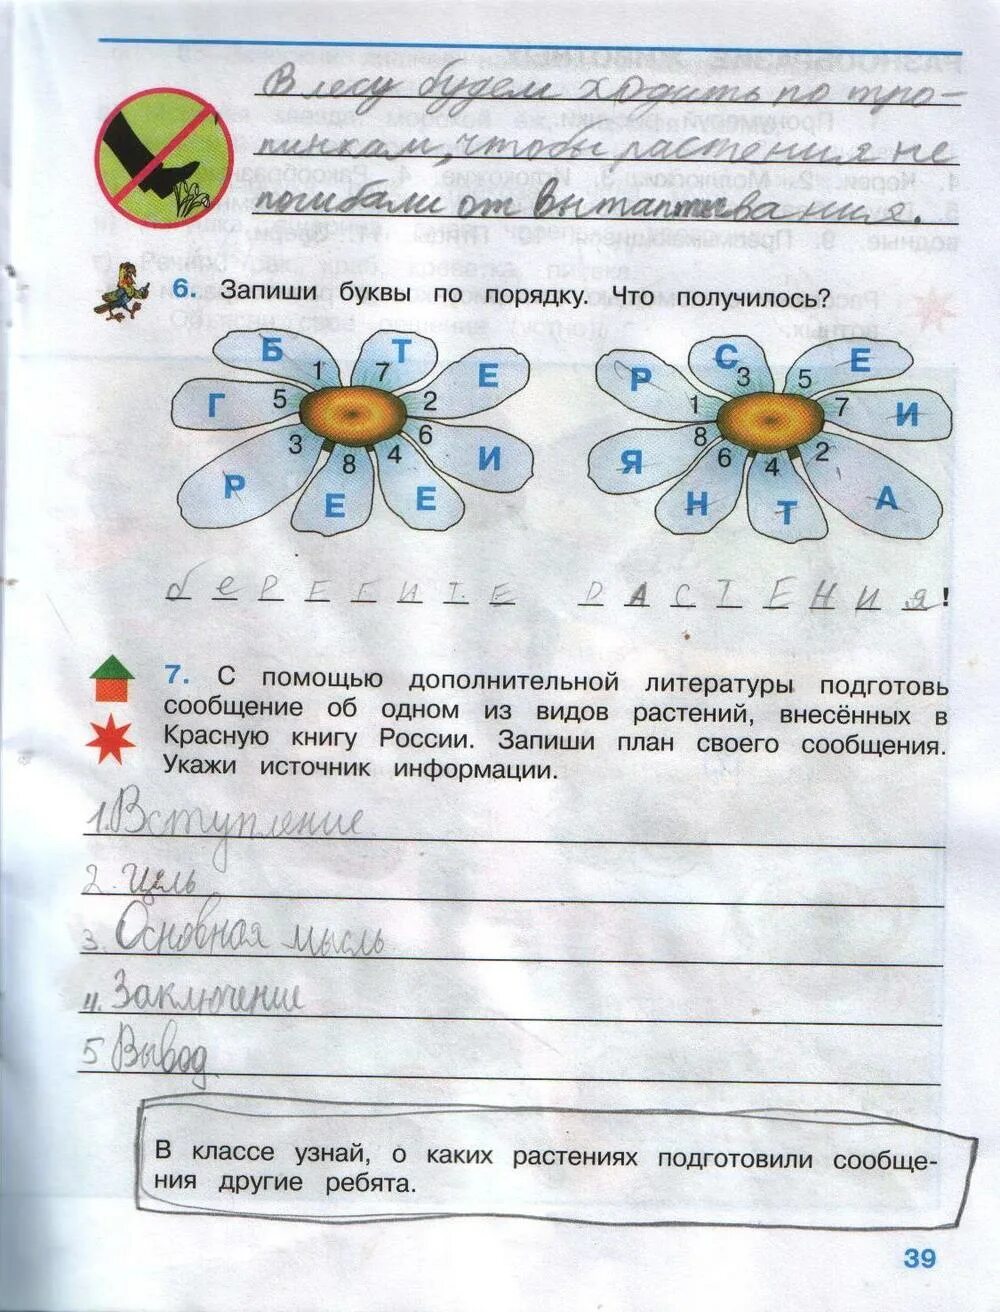 В лесу будем ходить по тро-
пинкам, чтобы растения не
погибали от вытаптывания.
6. Запиши буквы по порядку. Что получилось?
Б Т Е
1 7 2
Г 5
3 8 4 6 И
Р Е Е
Р С Е
1 3 5 7 И
8 6 4 2
Я Н Т А
БЕРЕГИТЕ РАСТЕНИЯ!
7. С помощью дополнительной литературы подготовь
сообщение об одном из видов растений, внесённых в
Красную книгу России. Запиши план своего сообщения.
Укажи источник информации.
1. Вступление
2. Цель
3. Основная мысль
4. Заключение
5 Вывод
В классе узнай, о каких растениях подготовили сообще-
ния другие ребята.
39